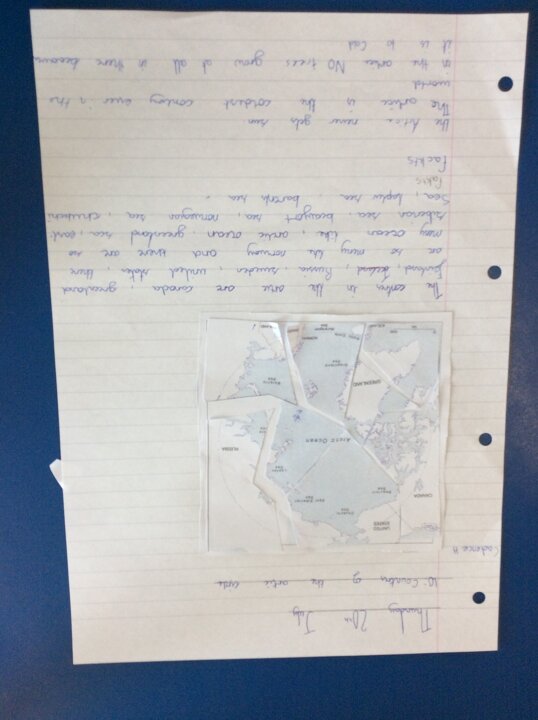 Thursday 20th July
10 Country of the artic cycle
Cadence H
UNITED
STATES
CANADA
RUSSIA
Arctic Ocean
GREENLAND
ICELAND
The contry in the artic are canada, greenland
finland, iceland, Russia, sweden, united state, there
are so many like norway and there are so
many ocean like, arctic ocean, greenland sea, east
siberian sea, beaufort sea, norwegian sea, chukchi
sea, laptev sea, barents sea.
fakts
fackts
the Artice never gets sun
The artice is the coldest contry ever in the
world
in the artice NO trees grow at all in there because
it is to cold